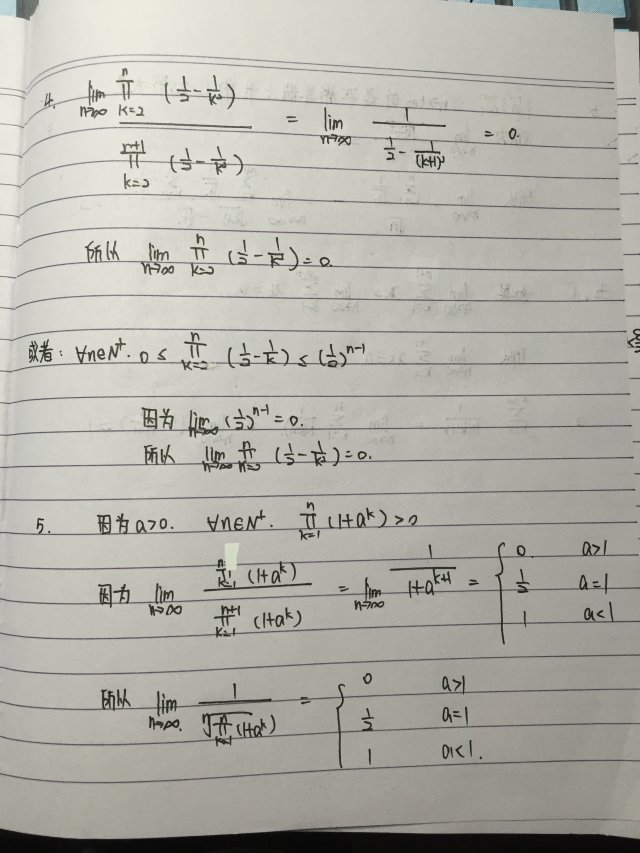 4. lim_{n→∞} ∏_{k=2}^{n} (1/2 - 1/k²) / ∏_{k=2}^{n+1} (1/2 - 1/k²) = lim_{n→∞} 1 / (1/2 - 1/(k+1)²) = 0.
所以 lim_{n→∞} ∏_{k=2}^{n} (1/2 - 1/k²) = 0.
或者: ∀n∈N⁺. 0 ≤ ∏_{k=2}^{n} (1/2 - 1/k) ≤ (1/2)^{n-1}
因为 lim_{n→∞} (1/2)^{n-1} = 0.
所以 lim_{n→∞} ∏_{k=2}^{n} (1/2 - 1/k²) = 0.
5. 因为 a>0. ∀n∈N⁺. ∏_{k=1}^{n} (1+a^k) > 0
因为 lim_{n→∞} ∏_{k=1}^{n} (1+a^k) / ∏_{k=1}^{n+1} (1+a^k) = lim_{n→∞} 1 / (1+a^{k+1}) = { 0. a>1
1/2 a=1
1 a<1
所以 lim_{n→∞.} 1 / ⁿ√(∏_{k=1}^{n} (1+a^k)) = { 0 a>1
1/2 a=1
1 a<1.